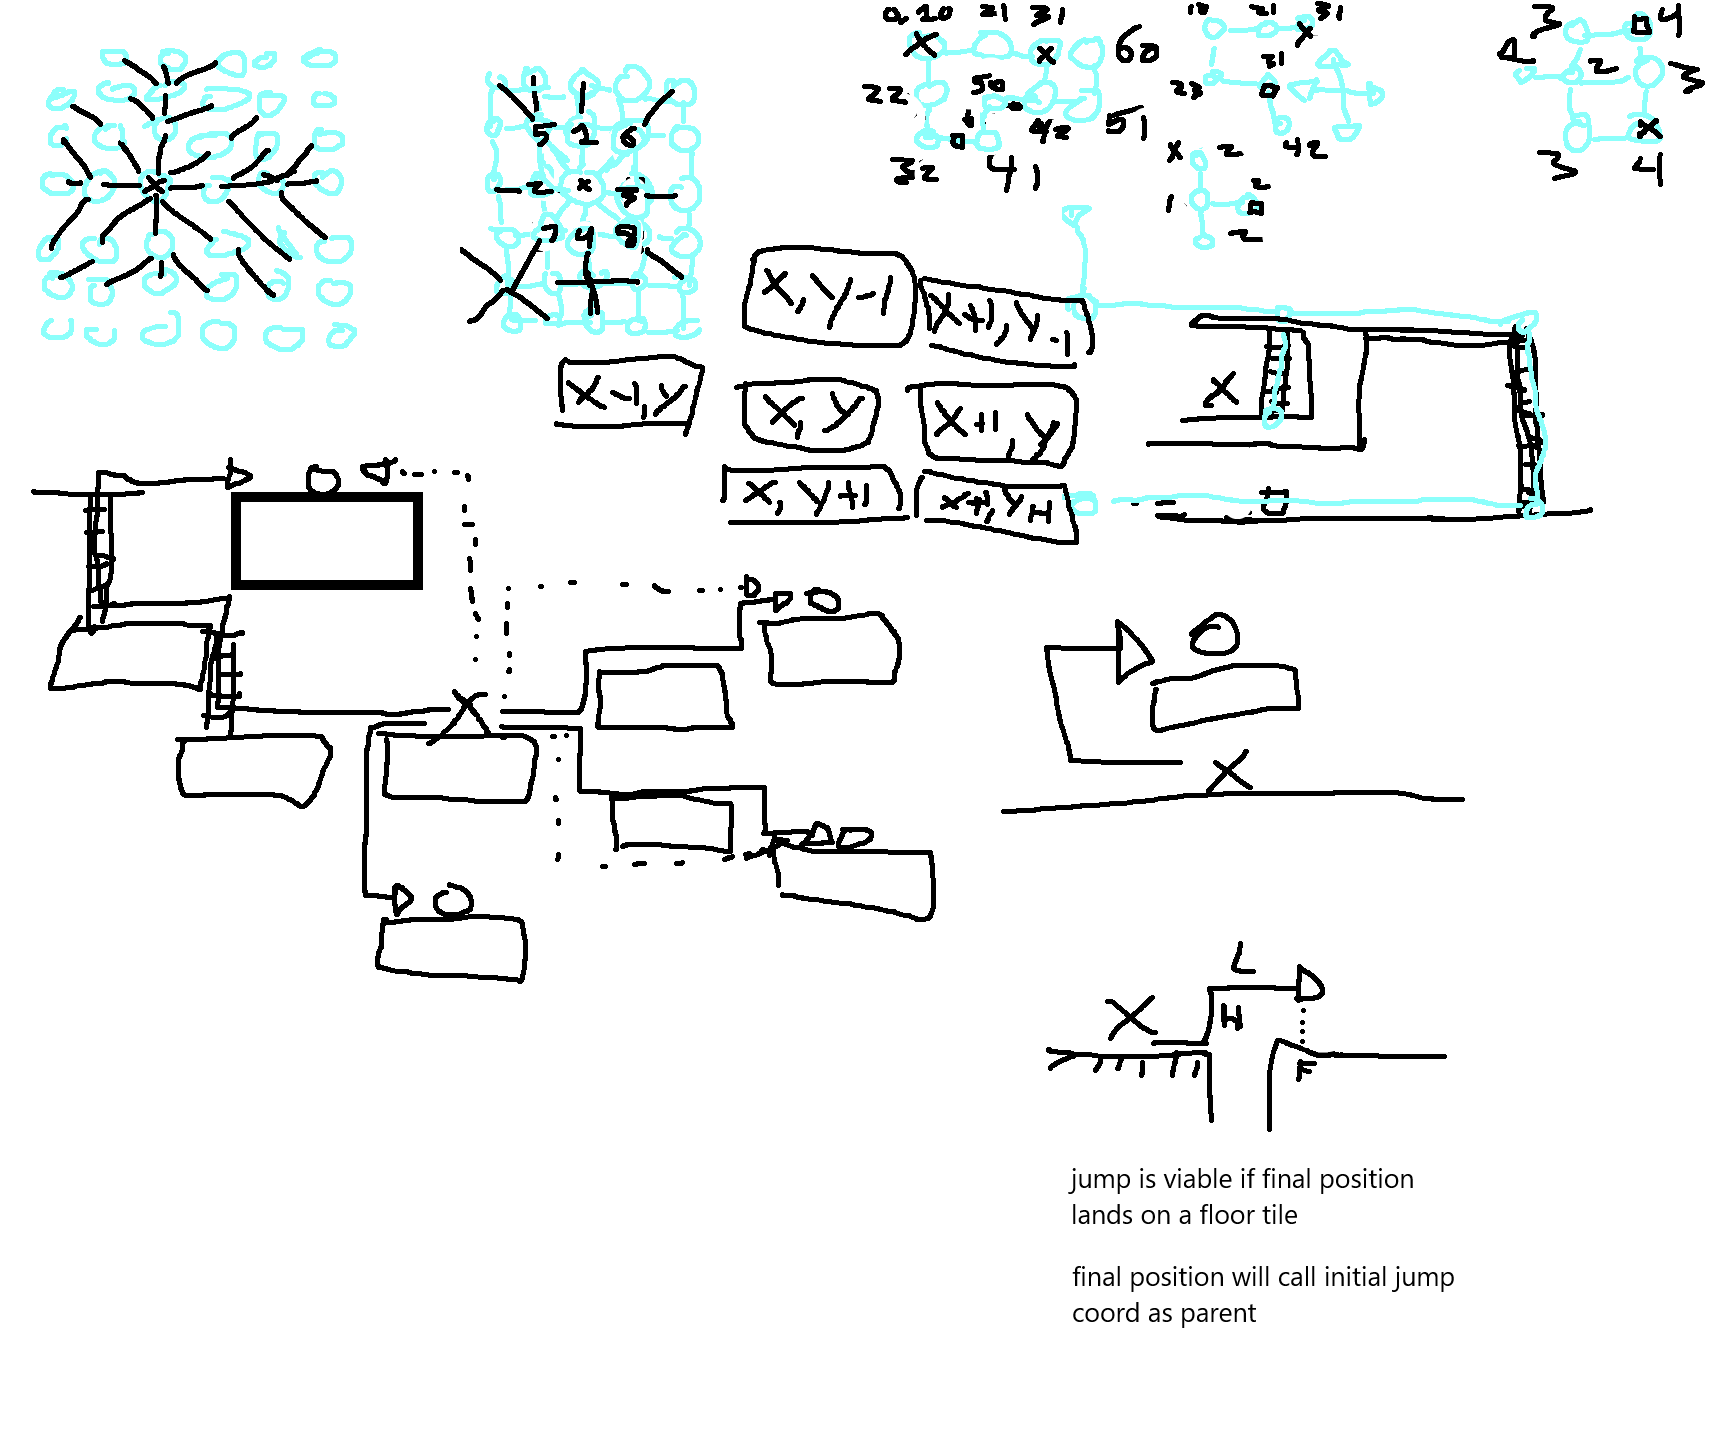 0,10 21 31
X
x
60
22
50
42
51
32
41
21 31
x
23
31
42
3
4
2
3
x
3
4
x
5 1 6
2 x 3
7 4 8
x 2
2
1
2
X, Y-1
X+1, Y-1
X-1, Y
X, Y
X+1, Y
X, Y+1
X
X
X
L
X
H
F
jump is viable if final position
lands on a floor tile
final position will call initial jump
coord as parent